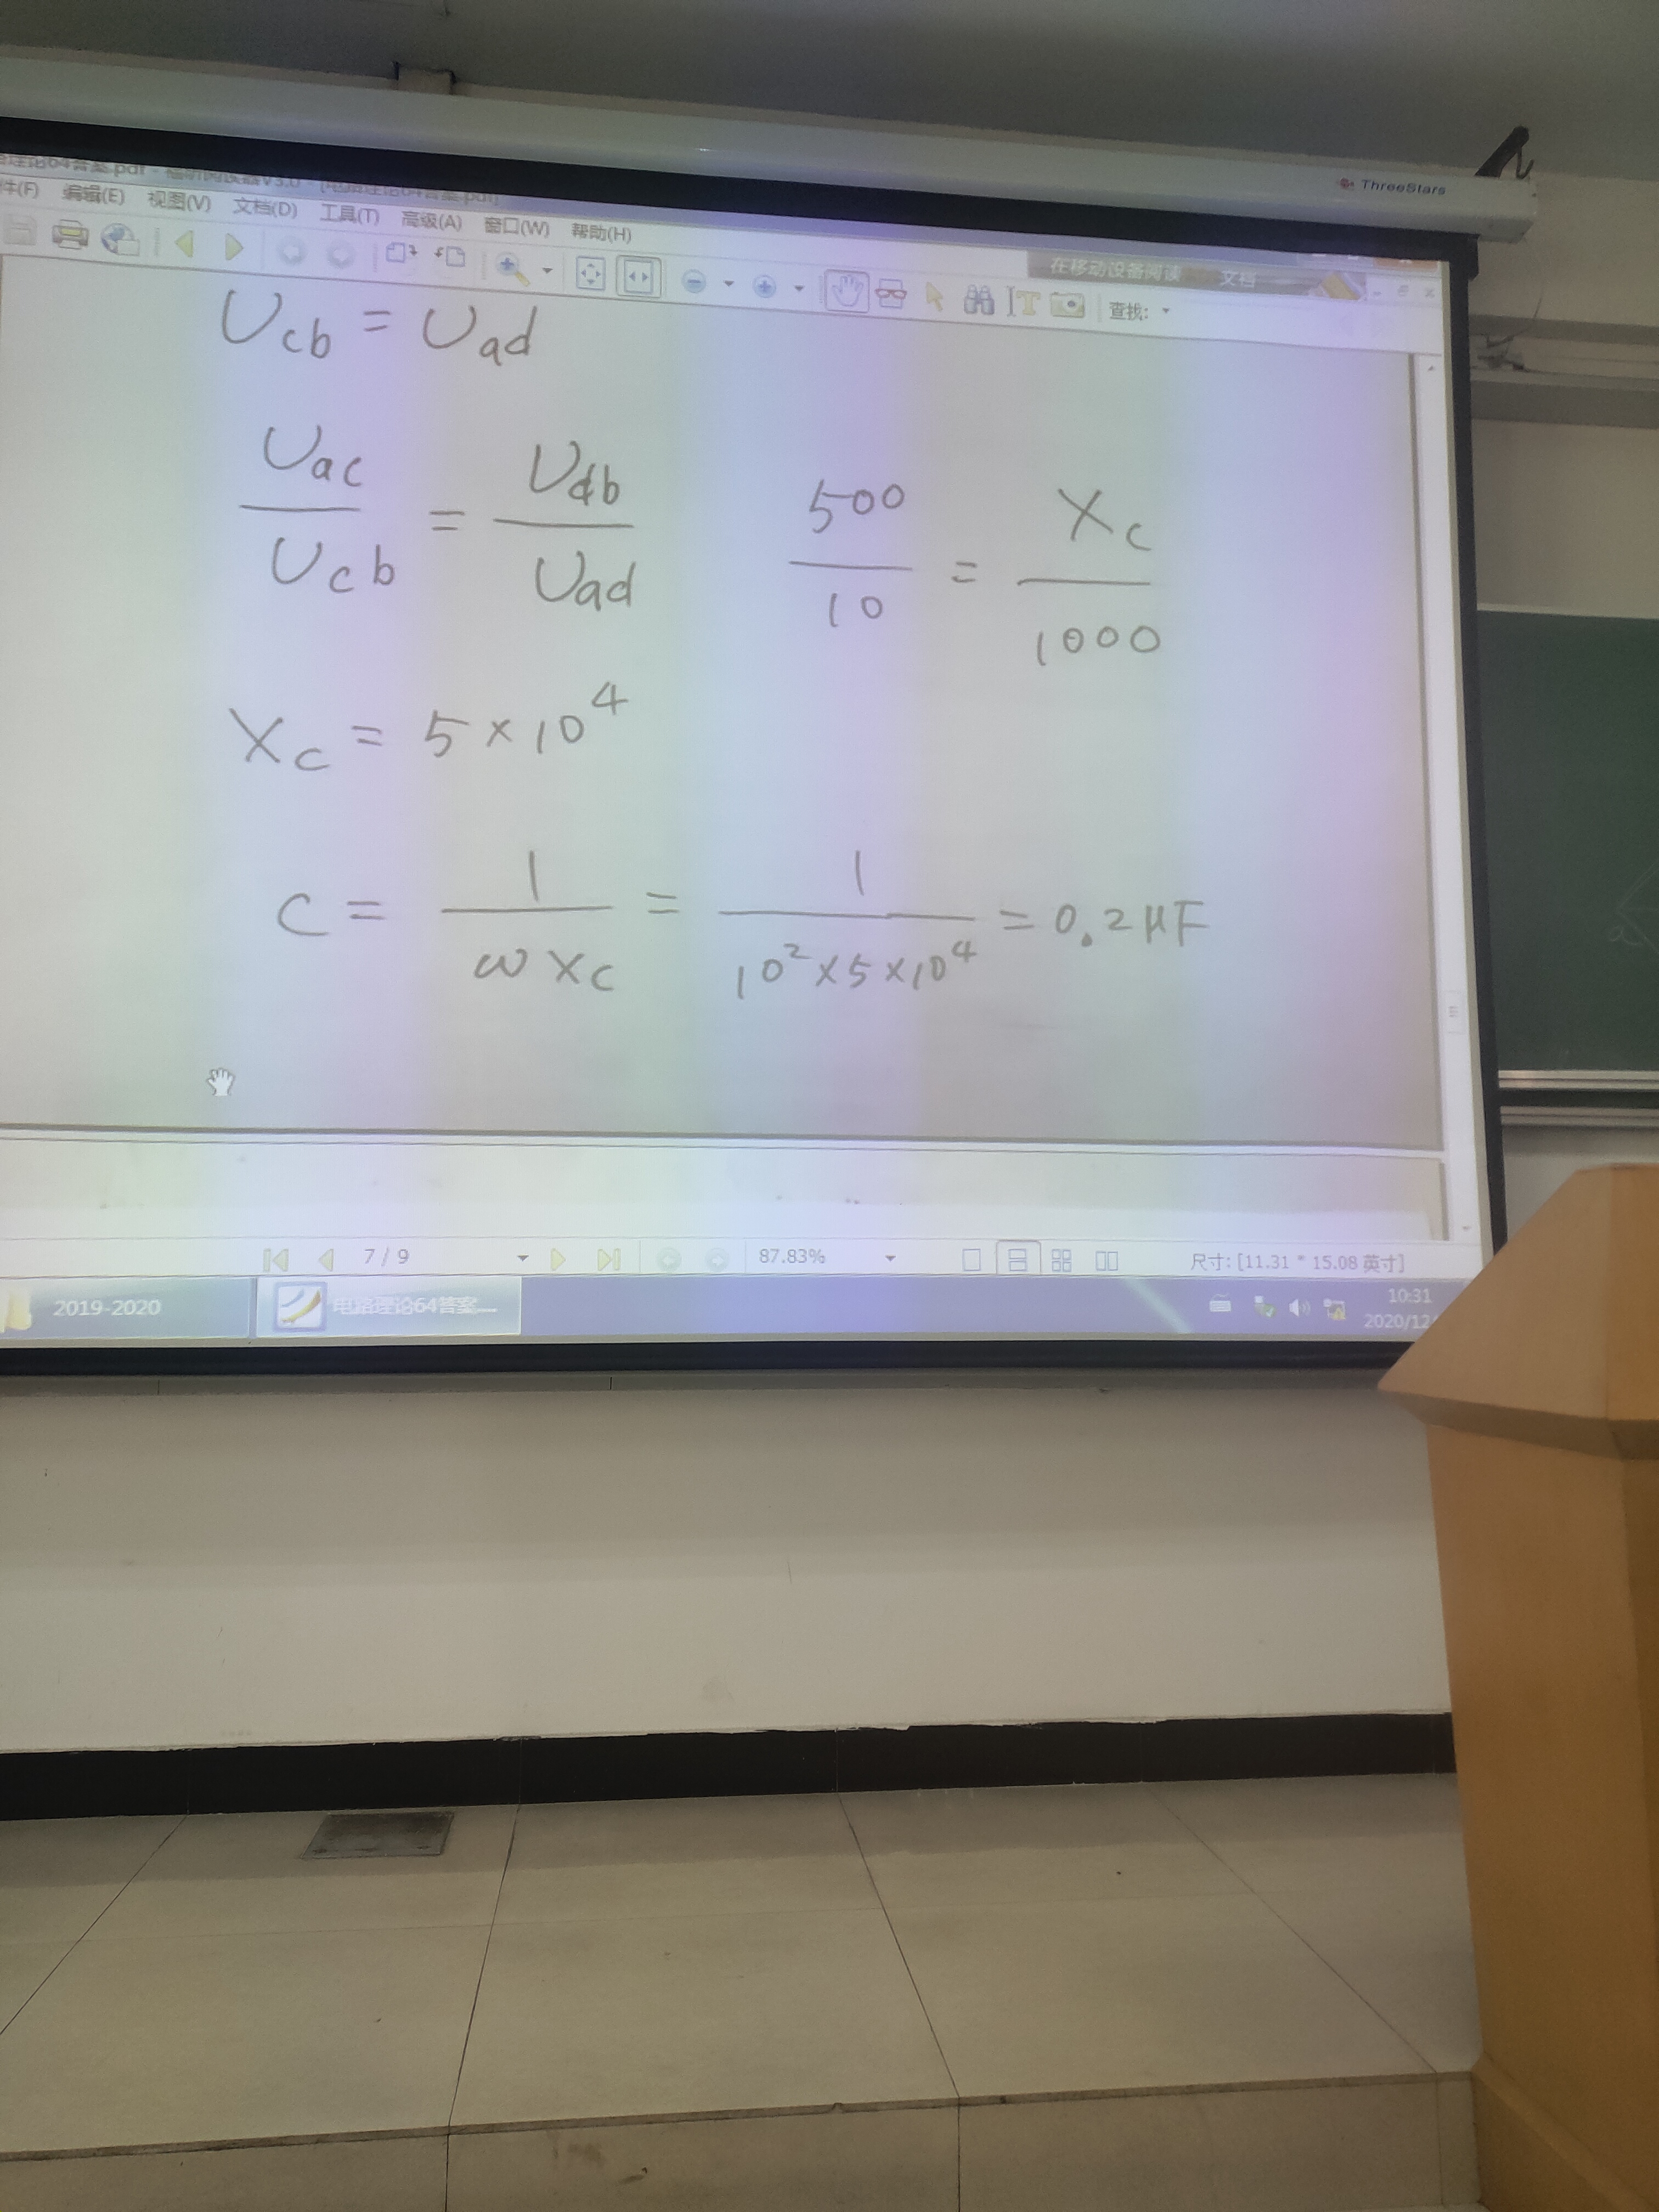 ThreeStars
理论64答案.pdf - 福昕阅读器V3.0 - [电路理论64答案.pdf]
件(F) 编辑(E) 视图(V) 文档(D) 工具(T) 高级(A) 窗口(W) 帮助(H)
在移动设备阅读 文档
查找:
Ucb = Uad
Uac/Ucb = Udb/Uad 500/10 = Xc/1000
Xc = 5×10⁴
C = 1/ωXc = 1/10²×5×10⁴ = 0.2μF
7 / 9 87.83% 尺寸: [11.31 * 15.08 英寸]
2019-2020 电路理论64答案....
10:31
2020/12